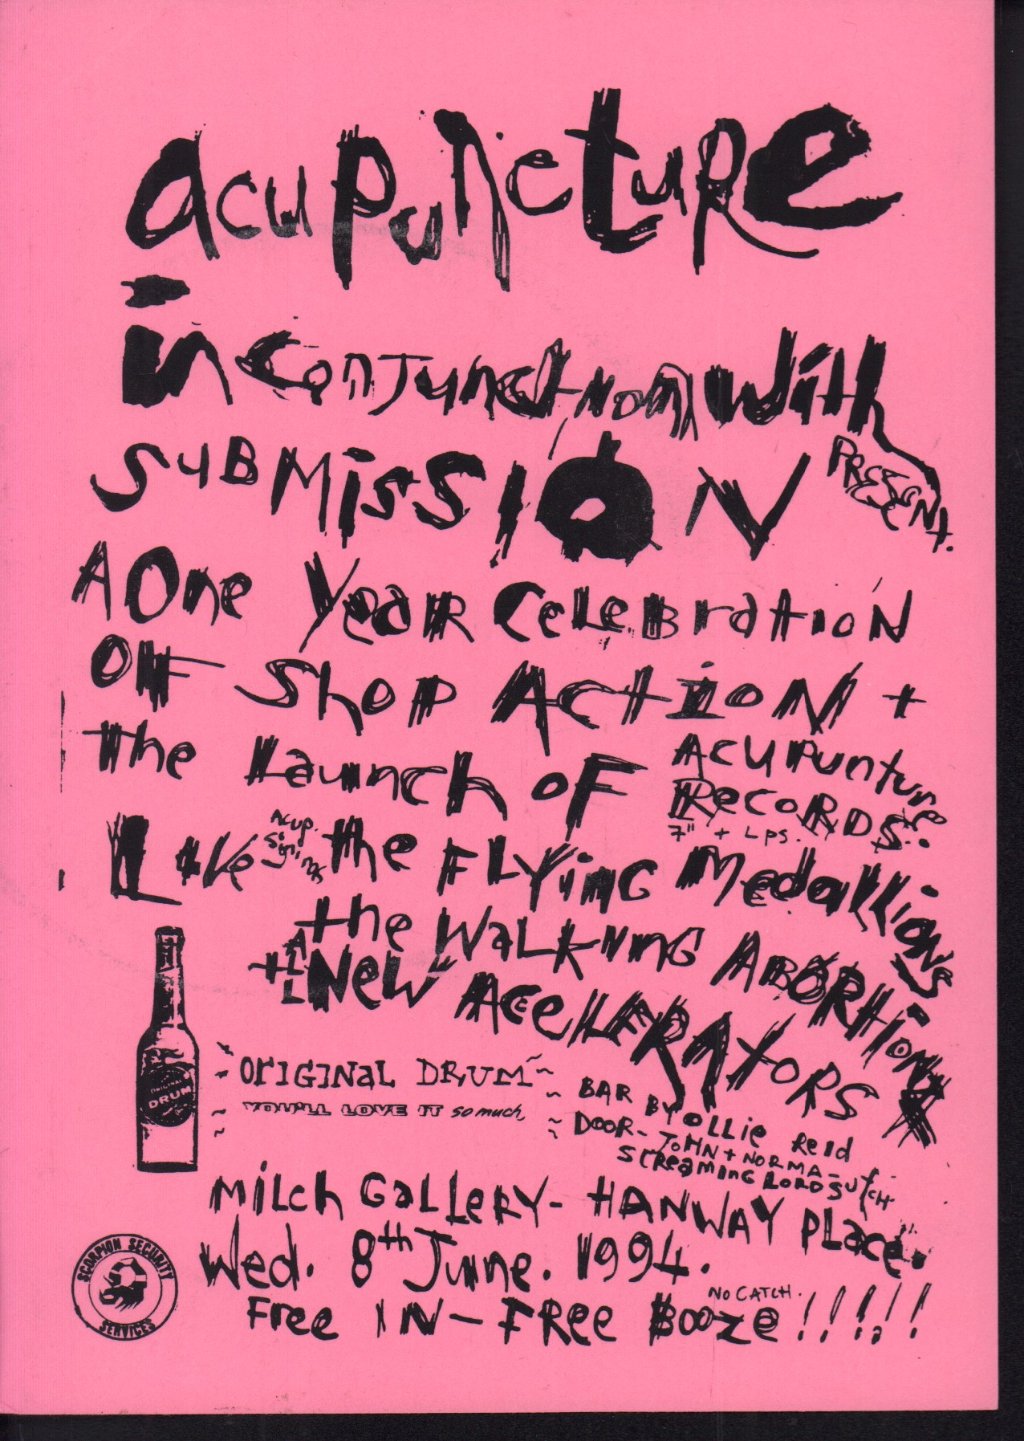 acupuncture
in conjunction with
SUBMISSION PRESENT.
A One Year CELEBration
OFF Shop ACTION +
the Launch OF Acupunture
RECORDS..
7" + Lps.
Live Acup. Signings the FLYing Medallions
the WALKING ABORTIONS
+ ALL NEW ACCELERATORS
ORIGINAL DRUM
YOU'LL LOVE IT so much
DRUM
BAR BY OLLIE Reid
DOOR - JOHN + NORMA -
SCREAMING LORD SUTCH.
MILCh GaLLERY - HANWAY PLace.
Wed. 8th June. 1994.
Free IN - FREE BOOZE NO CATCH. !!!!!
SCORPION SECURITY
SERVICES